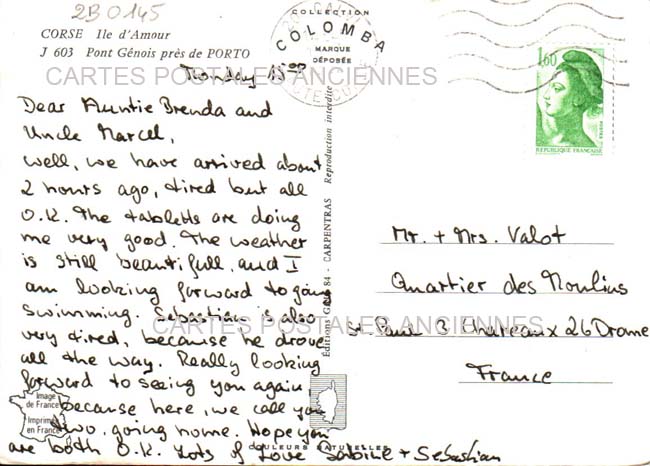 2B0145
CORSE Ile d'Amour
J 603 Pont Génois près de PORTO
COLLECTION
COLOMBA
MARQUE
DÉPOSÉE
CARTES POSTALES ANCIENNES
1,60
REPUBLIQUE FRANCAISE
Monday 15⁰⁰
Dear Auntie Brenda and
Uncle Marcel,
well, we have arrived about
2 hours ago, tired but all
O.K. The tabletts are doing
me very good. The weather
is still beautifull, and I
am looking forward to going
swimming. Sebastian is also
very tired, because he drove
all the way. Really looking
forward to seeing you again,
because here, we call you
two, going home. Hope you
are both O.K. Lots of Love Sabine + Sebastian
Reproduction interdite
84 - CARPENTRAS
Editions
Mr. + Mrs. Valot
Quartier des Moulins
St Paul 3 Chateaux 26 Drome
France
CARTES POSTALES ANCIENNES
Image
de France
Imprimé
en France
COULEURS NATURELLES